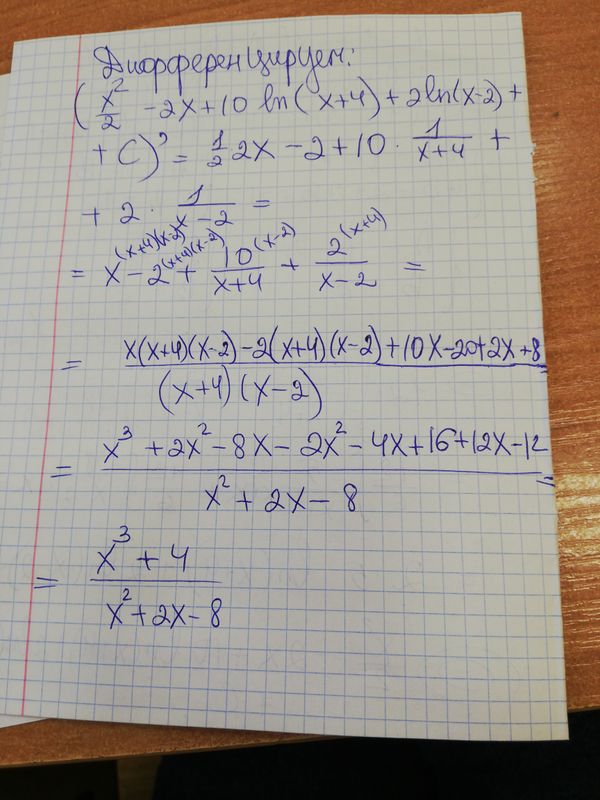 Дифференцируем:
(x²/2 - 2x + 10 ln(x+4) + 2ln(x-2) +
+ C)' = 1/2 2x - 2 + 10 · 1/(x+4) +
+ 2 · 1/(x-2) =
= x^(x+4)(x-2) - 2^(x+4)(x-2) + 10^(x-2)/(x+4) + 2^(x+4)/(x-2) =
= (x(x+4)(x-2) - 2(x+4)(x-2) + 10x - 20 + 2x + 8)/((x+4)(x-2)) =
= (x³ + 2x² - 8x - 2x² - 4x + 16 + 12x - 12)/(x² + 2x - 8) =
= (x³ + 4)/(x² + 2x - 8)